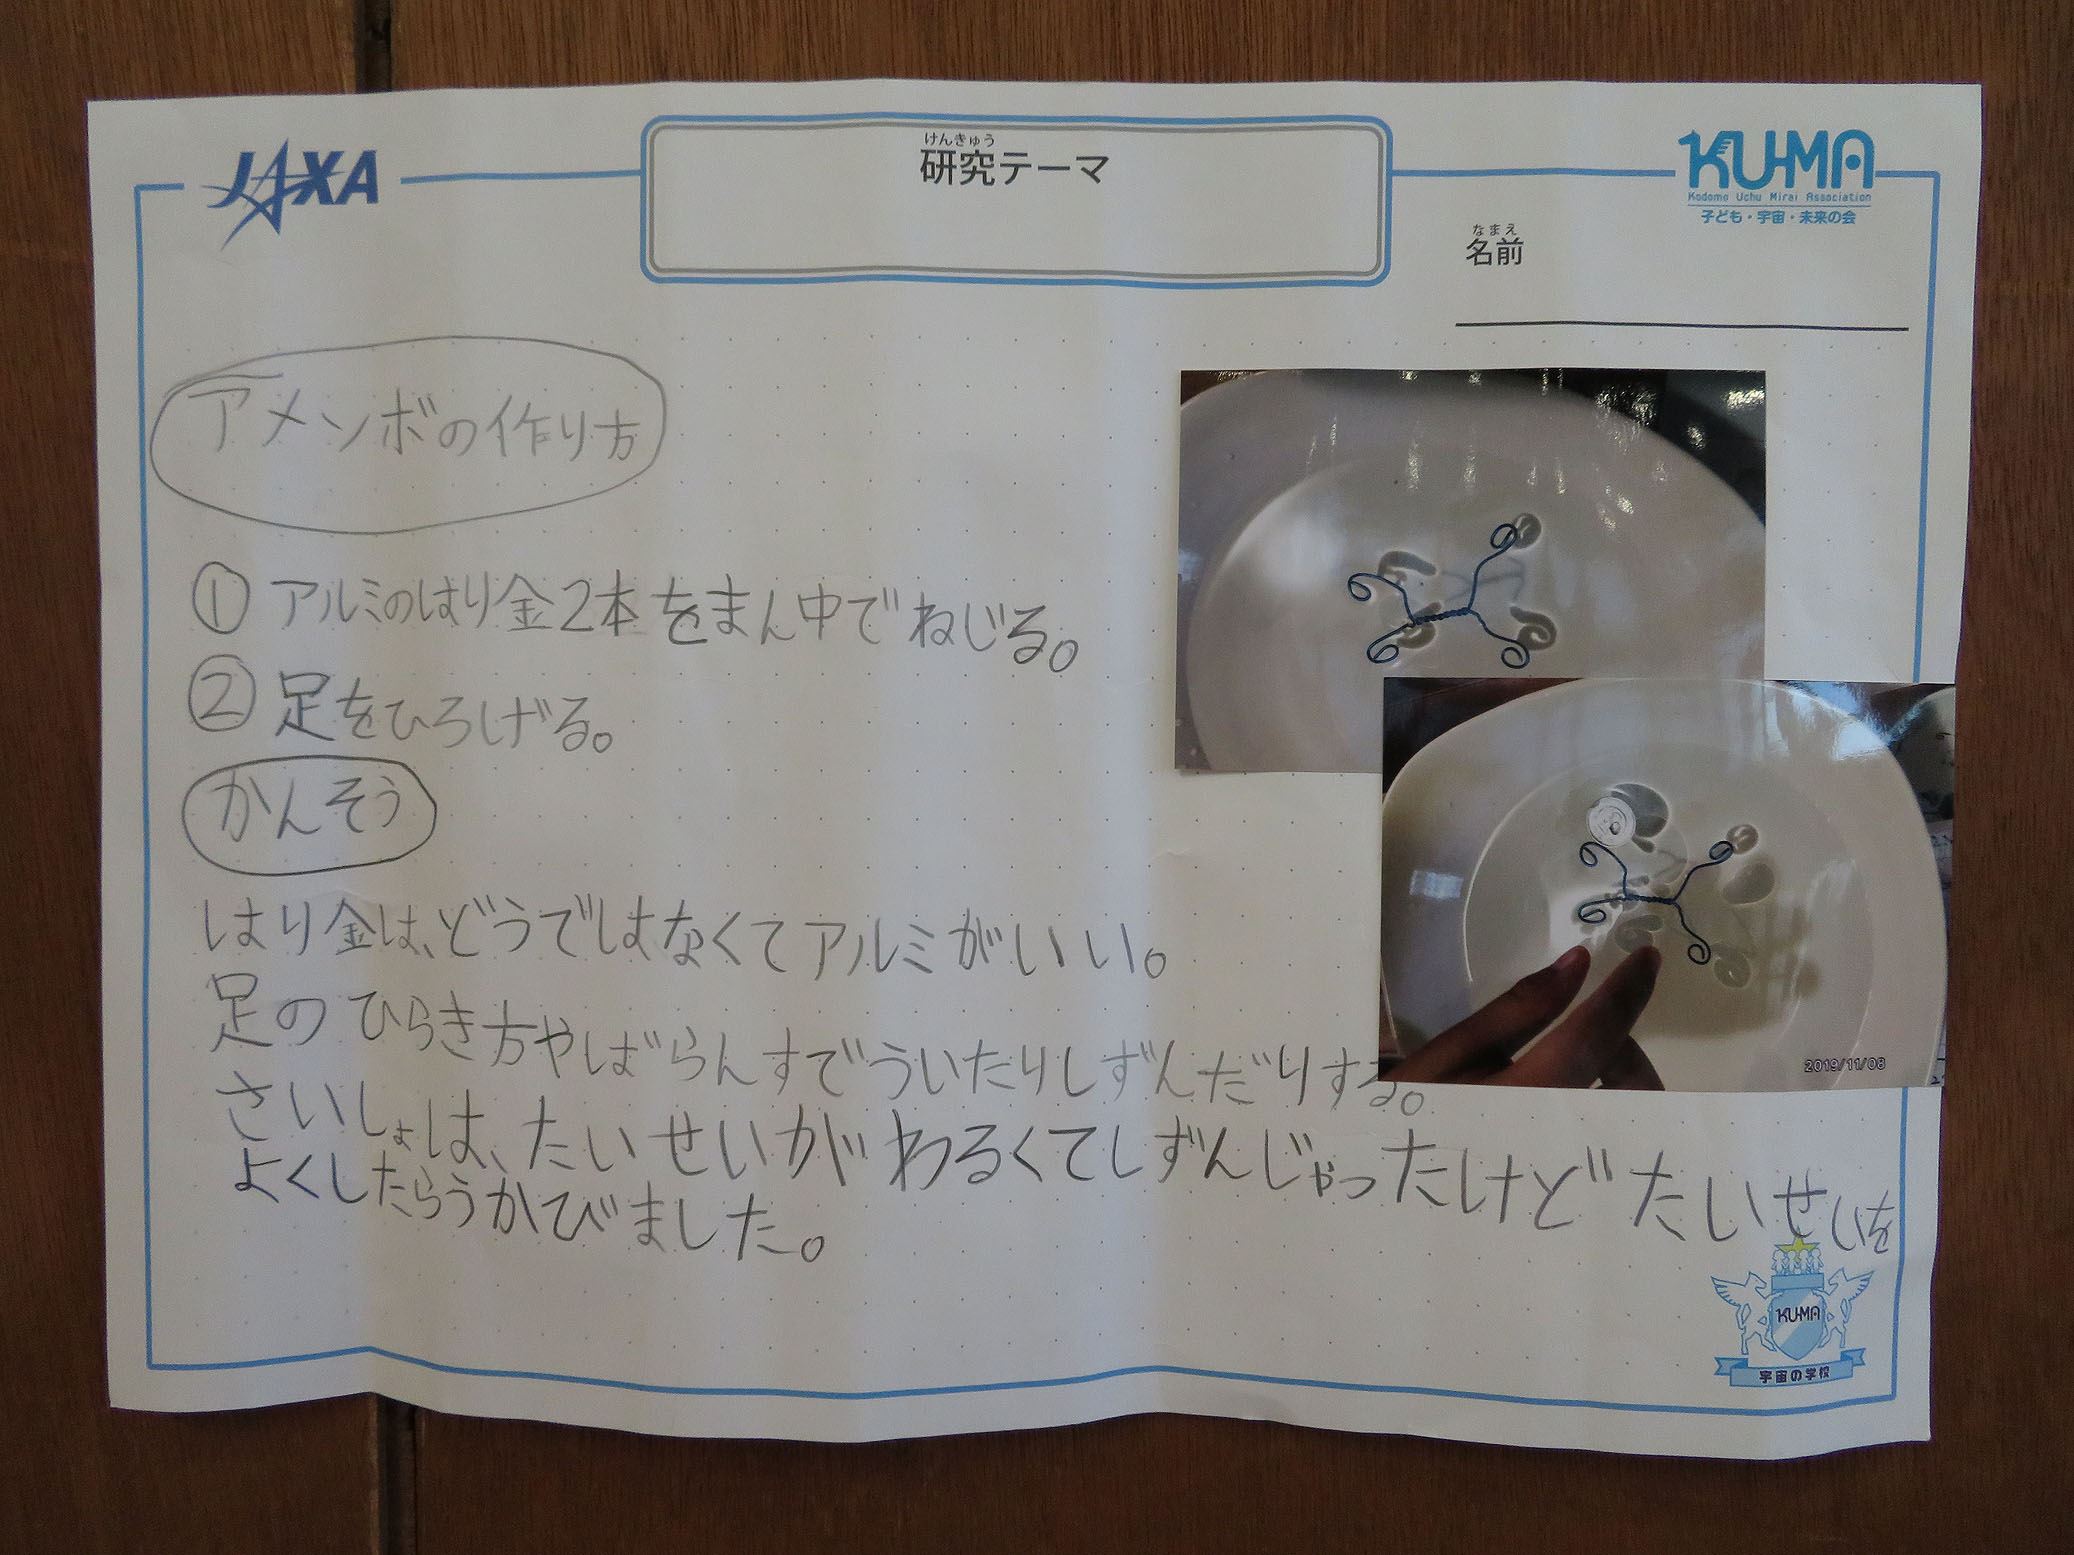 JAXA
けんきゅう
研究テーマ
KU-MA
Kodomo Uchu Mirai Association
子ども・宇宙・未来の会
なまえ
名前
アメンボの作り方
① アルミのはり金2本をまん中でねじる。
② 足をひろげる。
かんそう
はり金は、どうではなくてアルミがいい。
足のひらき方やばらんすでういたりしずんだりする。
さいしょは、たいせいがわるくてしずんじゃったけどたいせいを
よくしたらうかびました。
2019/11/08
KU-MA
宇宙の学校